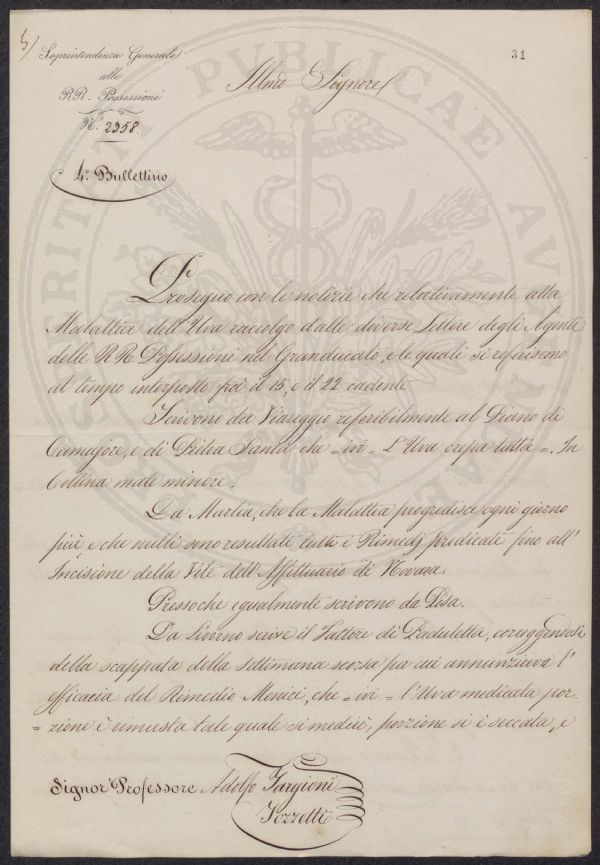 5)
31
Soprintendenza Generale
alle
RR. Possessioni
N.° 2358.
4.° Bullettino
Illmo Signore
Proseguo con le notizie che relativamente alla
Malattia dell'Uva raccolgo dalle diverse Lettere degli Agenti
delle RR. Possessioni nel Granducato, e le quali si riferiscono
al tempo interposto fra il 15, e il 22 cadente.
Scrivono da Viareggio referibilmente al Piano di
Camajore, e di Pietra Santa che = ivi = L'Uva crepa tutta =. In
Collina male minore.
Da Marlia, che la Malattia progredisce ogni giorno
più, e che nulli sono resultati tutti i Rimedj predicati fino all'
Incisione della Vite dell'Affittuario di Novara.
Pressoche egualmente scrivono da Pisa.
Da Livorno scrive il Fattore di Paduletta, correggendosi
della scappata della Settimana scorsa per cui annunziava l'
efficacia del Rimedio Menici, che = ivi = l'Uva medicata por-
= zione è rimasta tale quale si medicò, porzione si è seccata, e
Signor Professore Adolfo Targioni
Tozzetti
PROSPERITATI PUBLICAE AU